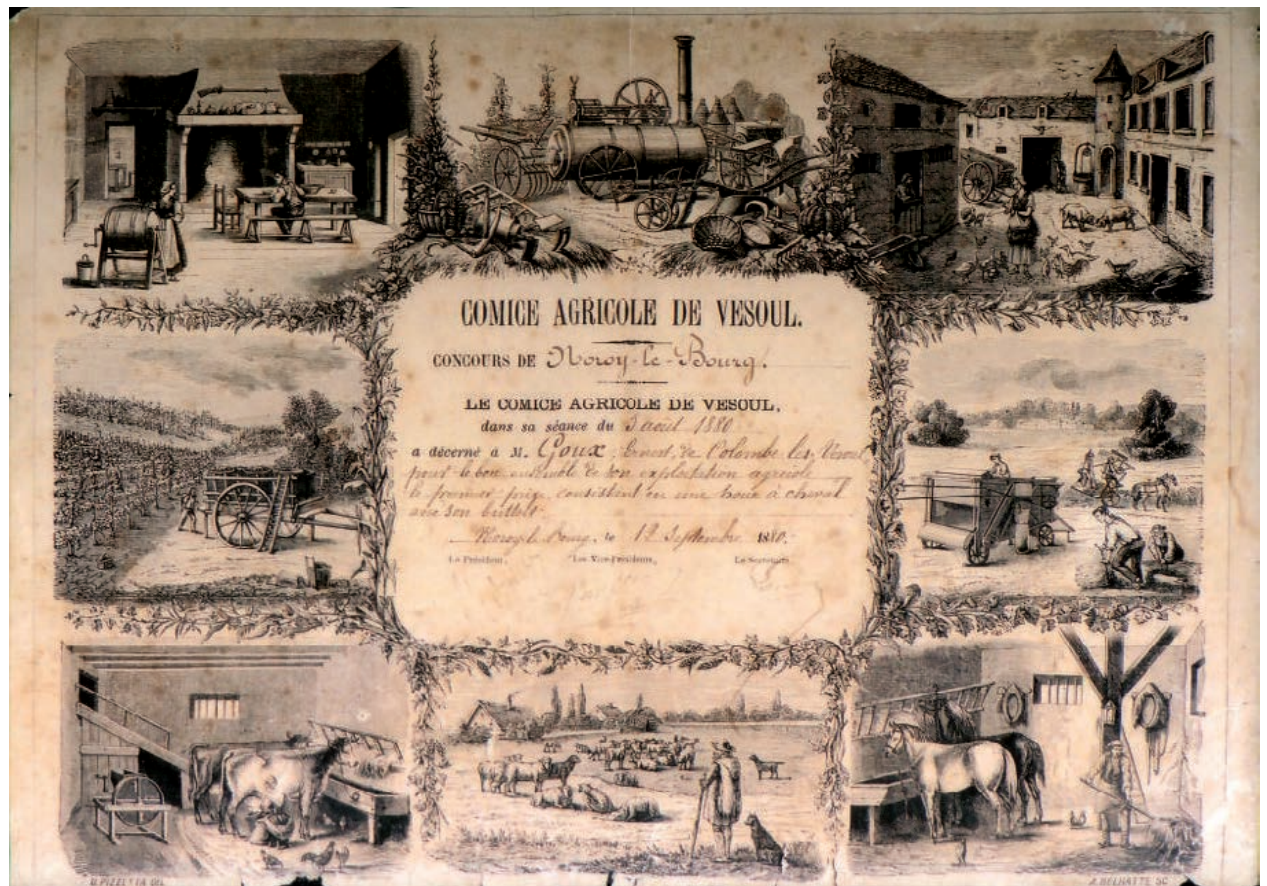 COMICE AGRICOLE DE VESOUL.
CONCOURS DE Noroy-le-Bourg.
LE COMICE AGRICOLE DE VESOUL,
dans sa séance du 3 août 1880
a décerné à M. Goux, Ernest, de Colombe les Vesoul
pour le bon ensemble de son exploitation agricole
le premier prix, consistant en une houe à cheval
avec son
Noroy-le-Bourg, le 12 Septembre 1880.
Le Président, Les Vice-Présidents, Le Secrétaire